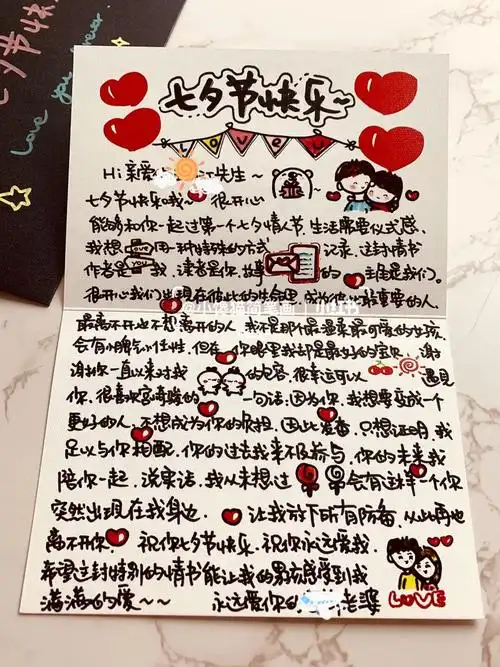 七夕节快乐~
LOVEU
Hi 亲爱 江先生~
七夕节快乐哦~ 很开心
能够和你一起过第一个七夕情人节,生活需要仪式感,
我想 用一种特殊的方式 记录,这封情书
作者是我,读者是你,故事 的 主题是我们。
很开心我们出现在彼此的生命里,成为彼此最重要的人,
@小熊猫简笔画 小红书
最离不开也不想离开的人,我不是那个最温柔最可爱的女孩,
会有小脾气小任性,但在 你眼里我却是最好的宝贝,谢
谢你一直以来对我 的包容,很幸运可以 遇见
你,很喜欢宫崎骏的 一句话:因为你,我想要变成一个
更好的人,不想成为你的负担,因此发奋,只想证明,我
足以与你相配,你的过去我来不及参与,你的未来我
陪你一起,说实话,我从未想过 会有这样一个你
突然出现在我身边, 让我放下所有防备,从此再也
离不开你, 祝你七夕节快乐,祝你永远爱我,
希望这封特别的情书能让我的男孩感受到我
满满的爱~~ 永远爱你的 老婆
LOVE
节快
Love you forever